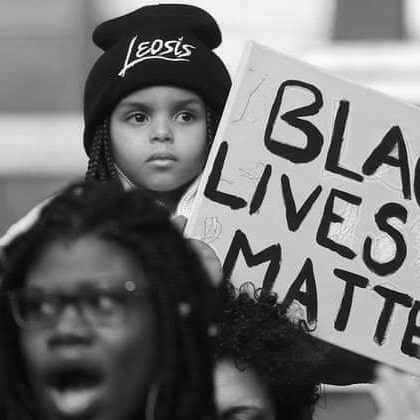 Leosis
BLA
LIVES
MATTE